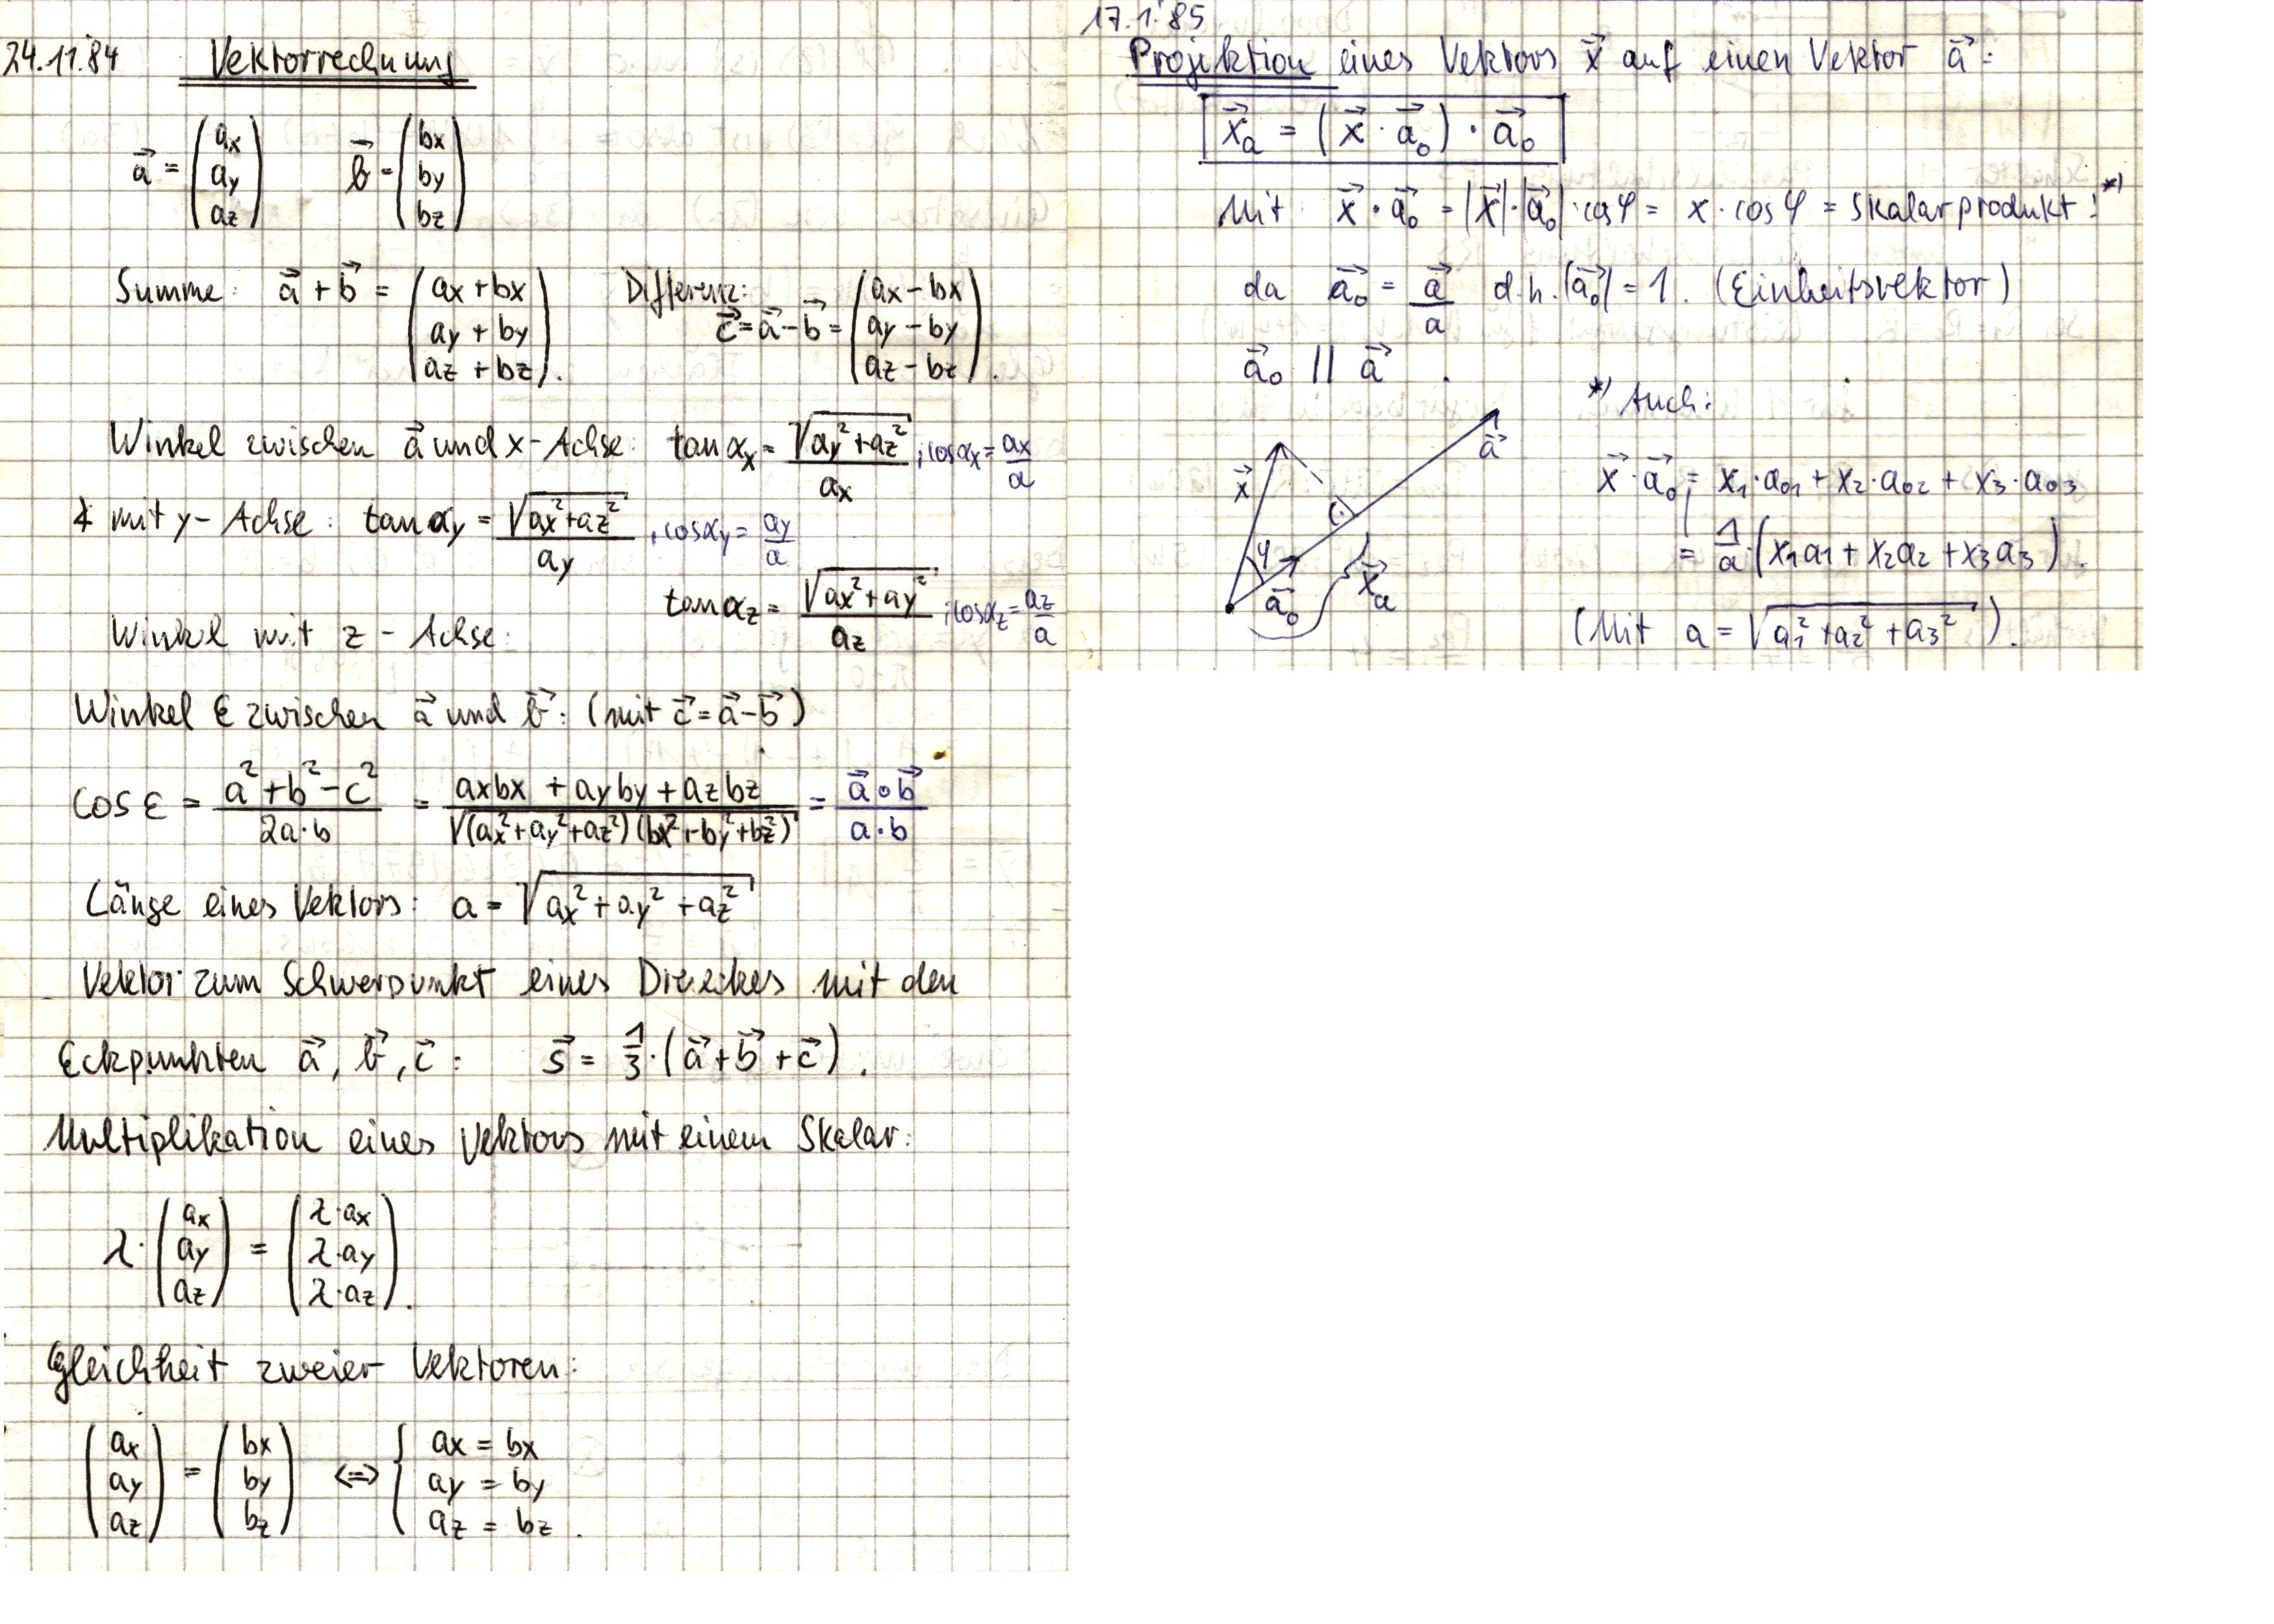 24.11.84 Vektorrechnung
a⃗ = (ax ay az) b⃗ = (bx by bz)
Summe: a⃗ + b⃗ = (ax + bx ay + by az + bz). Differenz: c⃗ = a⃗ - b⃗ = (ax - bx ay - by az - bz).
Winkel zwischen a⃗ und x-Achse: tan αx = √(ay² + az²) / ax ; cos αx = ax / a
∡ mit y-Achse: tan αy = √(ax² + az²) / ay , cos αy = ay / a
Winkel mit z-Achse: tan αz = √(ax² + ay²) / az ; cos αz = az / a
Winkel ε zwischen a⃗ und b⃗: (mit c⃗ = a⃗ - b⃗)
cos ε = (a² + b² - c²) / (2a·b) = (axbx + ayby + azbz) / √((ax² + ay² + az²)(bx² + by² + bz²)) = (a⃗ ∘ b⃗) / (a·b)
Länge eines Vektors: a = √(ax² + ay² + az²)
Vektor zum Schwerpunkt eines Dreieckes mit den
Eckpunkten a⃗, b⃗, c⃗: s⃗ = 1/3 · (a⃗ + b⃗ + c⃗).
Multiplikation eines Vektors mit einem Skalar:
λ · (ax ay az) = (λ·ax λ·ay λ·az).
Gleichheit zweier Vektoren:
(ax ay az) = (bx by bz) ⇔ { ax = bx ay = by az = bz.
17.1.85
Projektion eines Vektors x⃗ auf einen Vektor a⃗:
x⃗a = (x⃗ · a⃗₀) · a⃗₀
Mit x⃗ · a⃗₀ = |x⃗| · |a⃗₀| · cos φ = x · cos φ = Skalarprodukt! *)
da a⃗₀ = a⃗ / a d.h. |a⃗₀| = 1. (Einheitsvektor)
a⃗₀ || a⃗.
x⃗ a⃗ φ a⃗₀ x⃗a
*) Auch:
x⃗ · a⃗₀ = x₁·a₀₁ + x₂·a₀₂ + x₃·a₀₃
= 1/a · (x₁a₁ + x₂a₂ + x₃a₃).
(Mit a = √(a₁² + a₂² + a₃²)).